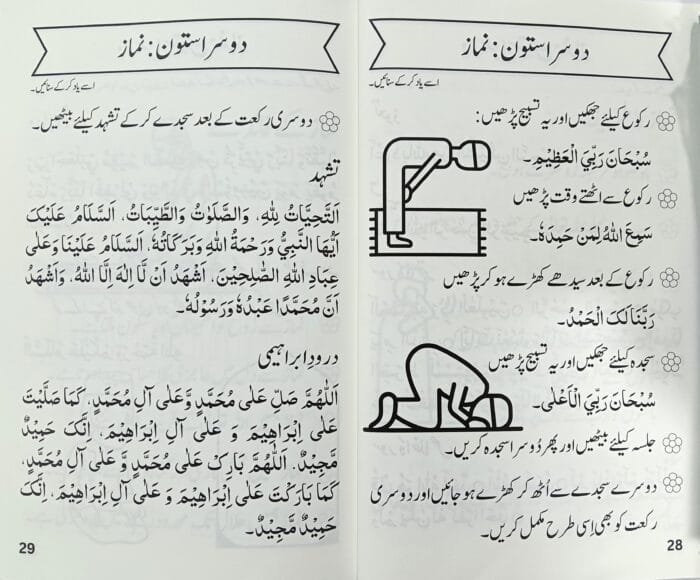 دوسرا ستون: نماز
اسے یاد کر کے سنائیں۔
رکوع کیلئے جھکیں اور یہ تسبیح پڑھیں:
سُبْحَانَ رَبِّيَ الْعَظِيْمِ۔
رکوع سے اٹھتے وقت پڑھیں
سَمِعَ اللهُ لِمَنْ حَمِدَهٗ۔
رکوع کے بعد سیدھے کھڑے ہو کر پڑھیں
رَبَّنَا لَکَ الْحَمْدُ۔
سجدہ کیلئے جھکیں اور یہ تسبیح پڑھیں
سُبْحَانَ رَبِّيَ الْاَعْلٰی۔
جلسہ کیلئے بیٹھیں اور پھر دُوسرا سجدہ کریں۔
دوسرے سجدے سے اُٹھ کر کھڑے ہو جائیں اور دوسری
رکعت کو بھی اِسی طرح مکمل کریں۔
28
دوسرا ستون: نماز
اسے یاد کر کے سنائیں۔
دوسری رکعت کے بعد سجدے کر کے تشہد کیلئے بیٹھیں۔
تشہد
اَلتَّحِيَّاتُ لِلّٰهِ، وَالصَّلَوٰتُ وَالطَّيِّبَاتُ، اَلسَّلَامُ عَلَيْکَ
اَيُّهَا النَّبِيُّ وَرَحْمَةُ اللهِ وَبَرَکَاتُهٗ، اَلسَّلَامُ عَلَيْنَا وَعَلٰی
عِبَادِ اللهِ الصّٰلِحِيْنَ، اَشْهَدُ اَنْ لَّا اِلٰهَ اِلَّا اللهُ، وَاَشْهَدُ
اَنَّ مُحَمَّدًا عَبْدُهٗ وَرَسُوْلُهٗ۔
درودِ ابراہیمی
اَللّٰهُمَّ صَلِّ عَلٰی مُحَمَّدٍ وَّعَلٰی آلِ مُحَمَّدٍ، کَمَا صَلَّيْتَ
عَلٰی اِبْرَاهِيْمَ وَ عَلٰی آلِ اِبْرَاهِيْمَ، اِنَّکَ حَمِيْدٌ
مَّجِيْدٌ، اَللّٰهُمَّ بَارِکْ عَلٰی مُحَمَّدٍ وَّ عَلٰی آلِ مُحَمَّدٍ،
کَمَا بَارَکْتَ عَلٰی اِبْرَاهِيْمَ وَ عَلٰی آلِ اِبْرَاهِيْمَ، اِنَّکَ
حَمِيْدٌ مَّجِيْدٌ۔
29